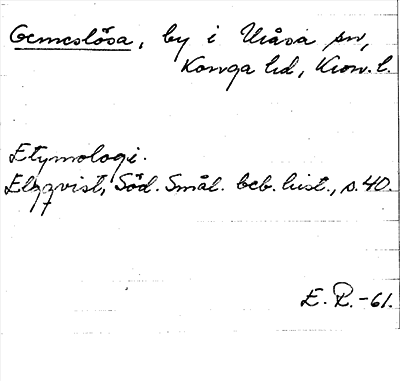 Gemeslösa, by i Uråsa sn,
Konga hd, Kron. l.
Etymologi.
Elgqvist, Söd. Smål. beb. hist., s. 40.
E. R. -61.